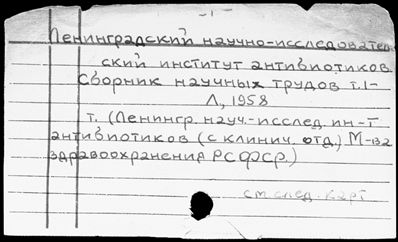 - 1 -
Ленинградский научно-исследователь
ский институт антибиотиков
Сборник научных трудов т.1-
Л., 1958
т. (Ленингр. науч.-исслед. ин-т
антибиотиков (с клинич. отд.) М-ва
здравоохранения РСФСР.)
см. след. карт.